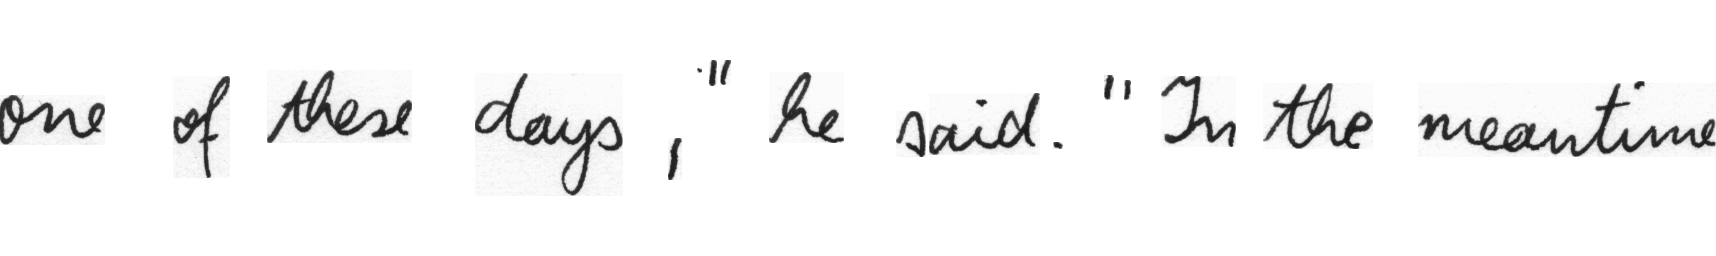 one of these days," he said. "In the meantime